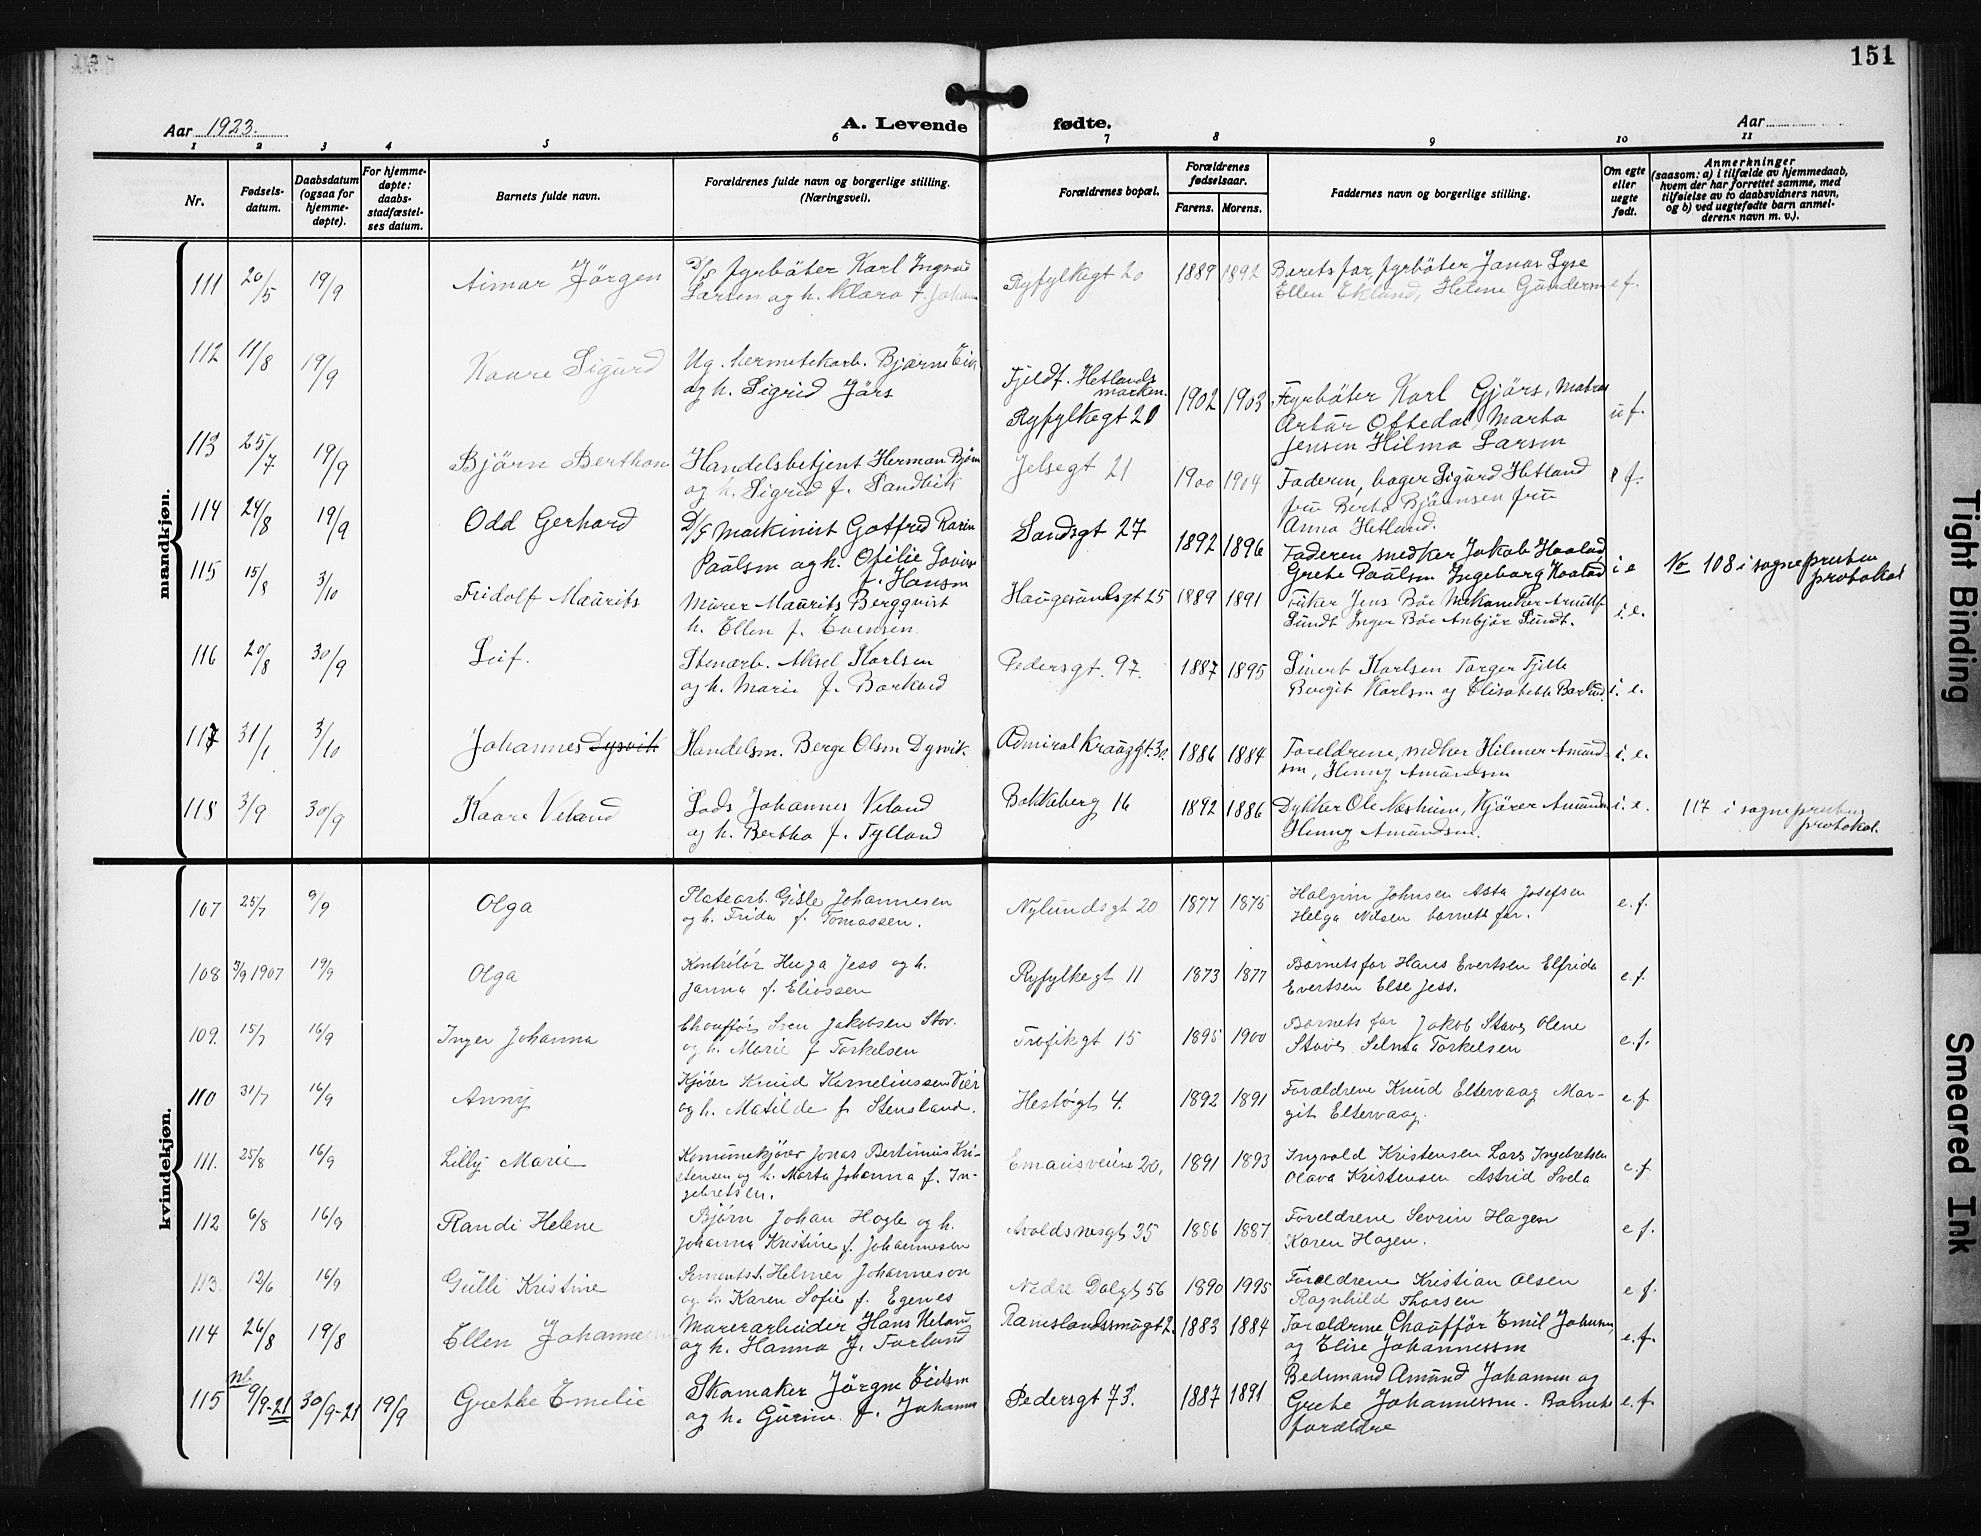 151
Aar 1923.
A. Levende fødte.
Aar
1 2 3 4 5 6 7 8 9 10 11
Nr.
Fødsels-
datum.
Daabsdatum
(ogsaa for
hjemme-
døpte).
For hjemme-
døpte:
daabs-
stadfæstel-
ses datum.
Barnets fulde navn.
Forældrenes fulde navn og borgerlige stilling.
(Næringsvei).
Forældrenes bopæl.
Forældrenes
fødselsaar.
Farens. Morens.
Faddernes navn og borgerlige stilling.
Om egte
eller
uegte
født.
Anmerkninger
(saasom: a) i tilfælde av hjemmedaab,
hvem der har forrettet samme, med
tilføielse av to daabsvidners navn,
og b) ved uegtefødte barn anmel-
derens navn m. v.).
mandkjøn.
111 20/5 19/9 Aimar Jörgen
D/S fyrböter Karl Ingvald
Larsen og h. Klara f. Johan
Ryfylkegt 20 1889 1892
Barets far fyrböter Jonas Lyse
Ellen Eklund, Helene Gundersen e f.
112 11/8 19/9 Kaare Sigurd
Ug. hermetekarb. Bjarne
og h. Sigrid Jörs
Fjeldf. Hetlands
marken.
Ryfylkegt 20 1902 1903
Fyrböter Karl Gjörs, Matros
Artur Oftedal, Marta
Jensen Hilma Larsen u f.
113 25/7 19/9 Björn Berthon
Handelsbetjent Herman Björn
og h. Sigrid f. Sandvik
Jelsegt 21 1900 1904
Faderen, bager Sigurd Hetland
fru Berta Björnsen fru
Anna Hetland. e f.
114 24/8 19/9 Odd Gerhard
D/S Maskinist Gotfred
Paulsen og h. Ofilie
f. Hansen
Sandsgt 27 1892 1896
Faderen snedker Jakob Haaland
Grete Paulsen Ingeborg Haaland i e
No 108 i sogneprestens
protokol
115 15/8 3/10 Fridolf Maurits
Murer Maurits Bergqvist
h. Ellen f. Evensen
Haugesundsgt 25 1889 1891
Jens Böe Mekaniker
Sundt Inger Böe Anbjör Sundt. i. e.
116 20/8 30/9 Leif.
Stenarb. Aksel Karlsen
og h. Marie f. Barkved
Pedersgt. 97. 1887 1895
Sivert Karlsen Torger Tjelle
Bergit Karlsen og Elisabeth Barkved i. e.
117 31/1 3/10 Johannes Dysvik
Handelsm. Berge Olsen Dysvik
Admiral Kruygt. 30. 1886 1884
Foreldrene, snedker Hilmer Amund-
sen, Henny Amundsen i. e.
118 3/9 30/9 Kaare Veland
Lods Johannes Veland
og h. Bertha f. Tylland
Bakkeberg 16 1892 1886
Dykker Ole Næsheim, Kjører Amundsen
Henny Amundsen. i. e.
117 i sogneprestens
protokol.
kvindekjøn.
107 25/7 9/9 Olga
Platearb. Gisle Johannesen
og h. Frida f. Tomassen.
Nylundsgt 20 1877 1875
Halgrim Johnsen Asta Josefsen
Helga Nilsen barnets far. e. f.
108 3/9 1907 19/9 Olga
Kontrölör Hugo Jess og h.
Janna f. Eliassen
Ryfylkegt 11 1873 1877
Barnets far Hans Evertsen Elfrida
Evertsen Else Jess. e f.
109. 15/7 16/9 Inger Johanna
Chaufför Sven Jakobsen Stav.
og h. Marie f Torkelsen
Trafikgt 15 1895 1900
Barnets far Jakob Stave Olene
Stave Selma Torkelsen e. f.
110 31/7 16/9 Anny
Kjører Knud Korneliussen
og h. Matilde f. Stensland.
Hestøgt 4. 1892 1891
Forældrene Knud Eltervaag Mar-
git Eltervaag. e. f
111. 25/8 16/9 Lilly Marie
Komunekjører Jonas Bertinius Kri-
stensen og h. Marta Johanna f. In-
gebretsen.
Emausveien 20, 1891 1893
Ingvald Kristensen Lars Ingebretsen
Olava Kristensen Astrid Svela e f
112 6/8 16/9 Randi Helene
Bjørn Johan Hagle og h.
Johanna Kristine f. Johannesen
Avaldsnesgt 35 1886 1887
Foreldrene Sevrin Hagen
Karen Hagen. e f.
113. 12/6 16/9 Gulli Kristine
Sementst. Helmer Johanneson
og h. Karen Sofie f. Egenes
Nedre Dalgt 56 1890 1995
Forældrene Kristian Olsen
Ragnhild Thorsen e f.
114 26/8 19/8 Ellen Johanne
Murerarbeider Hans Heland
og h. Hanna f. Forland
Ramslandssmugt 2. 1883 1884
Forældrene Chaufför Emil Johnsen
og Elise Johannessen e. f.
115 nb. 9/9-21 30/9-21 19/9 Grethe Emelie
Skomaker Jörgen Eidsen
og h. Gurine f. Johannes
Pedersgt 73. 1887 1891
Bedemand Amund Johansen og
Grete Johannessen. Barnets
forældre e. f.
Tight Binding
Smeared Ink